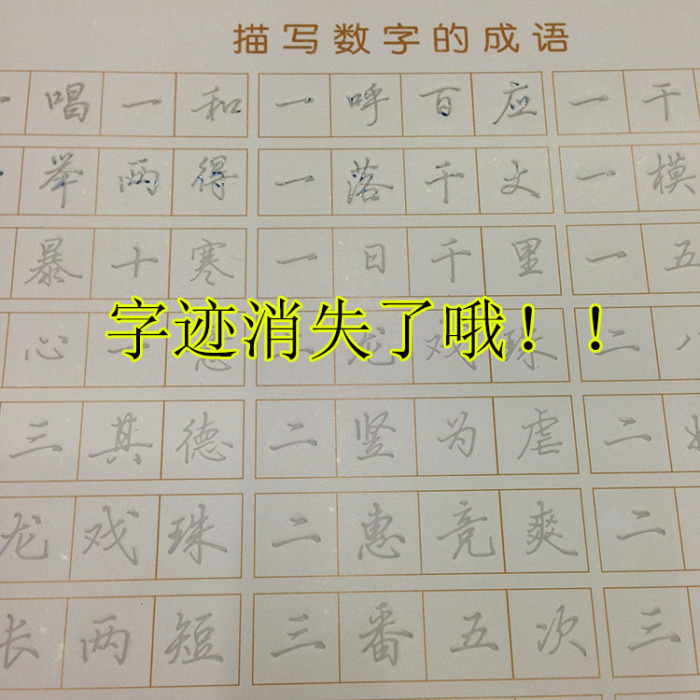 描写数字的成语
一唱一和 一呼百应 一干
举两得 一落千丈 一模
暴十寒 一日千里 一五
字迹消失了哦！！
心 二龙戏珠 二八
三其德 二竖为虐 二
龙戏珠 二惠竞爽 二
长两短 三番五次 三